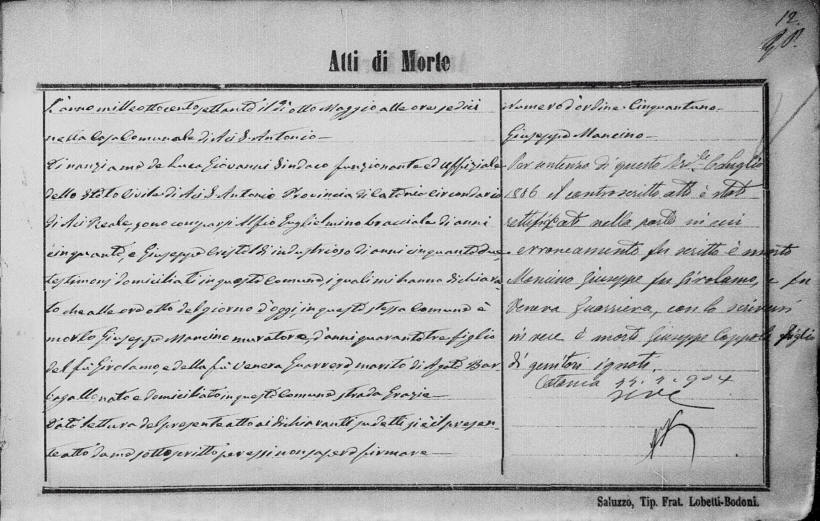 12.
Atti di Morte
L'anno milleottocentosettanta il dì otto Maggio alle ore sedici
nella Casa Comunale di Aci S. Antonio —
Dinanzi a me de Luca Giovanni Sindaco funzionante ed Uffiziale
dello Stato Civile di Aci S. Antonio Provincia di Catania circondario
di Aci Reale, sono comparsi Alfio Guglielmino bracciale di anni
cinquanta, e Giuseppe Cristaldi industrioso di anni cinquantadue
testimoni domiciliati in questo Comune, i quali mi hanno dichiara-
to che alle ore otto del giorno d'oggi in questo stesso Comune è
morto Giuseppe Mancino muratore, d'anni quarantatre figlio
del fu Girolamo e della fu Venera Guarrera, marito di Agata Bar
bagallo nato e domiciliato in questo Comune strada Grazie —
Data lettura del presente atto ai dichiaranti sudetti si è il presen-
te atto da me sottoscritto per essi non sapere firmare —
Numero d'ordine Cinquantuno
Giuseppe Mancino —
Per sentenza di questo Luglio
1886 il controscritto atto è stato
rettificato nella parte in cui
erroneamente fu scritto è morto
Mancino Giuseppe fu Girolamo, e fu
Venera Guarriera, con lo scriversi
in vece è morto Giuseppe Coppola figlio
di genitori ignoti.
Catania
Saluzzo, Tip. Frat. Lobetti-Bodoni.